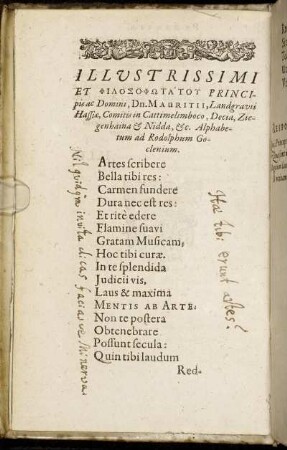 ILLVSTRISSIMI
ET ΦΙΛΟΣΟΦΩΤΑΤΟΥ PRINCI-
pis ac Domini, Dn. MAVRITII, Landgravii
Hassiæ, Comitis in Cattimelimboco, Decia, Zie-
genhaina & Nidda, &c. Alphabe-
tum ad Rodolphum Go-
clenium.
Artes scribere
Bella tibi res:
Carmen fundere
Dura nec est res:
Et ritè edere
Flamine suavi
Gratam Musicam,
Hoc tibi curæ.
In te splendida
Judicii vis,
Laus & maxima
MENTIS AB ARTE.
Non te postera
Obtenebrare
Possunt secula:
Quin tibi laudum
Red-
Nil quidq̃ invita dicas faciasve Minerva.
Hæ tibi erunt artes.